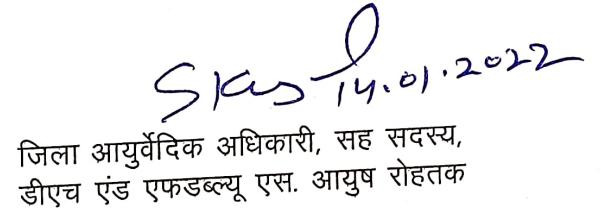 14.01.2022
जिला आयुर्वेदिक अधिकारी, सह सदस्य,
डीएच एंड एफडब्ल्यू एस. आयुष रोहतक